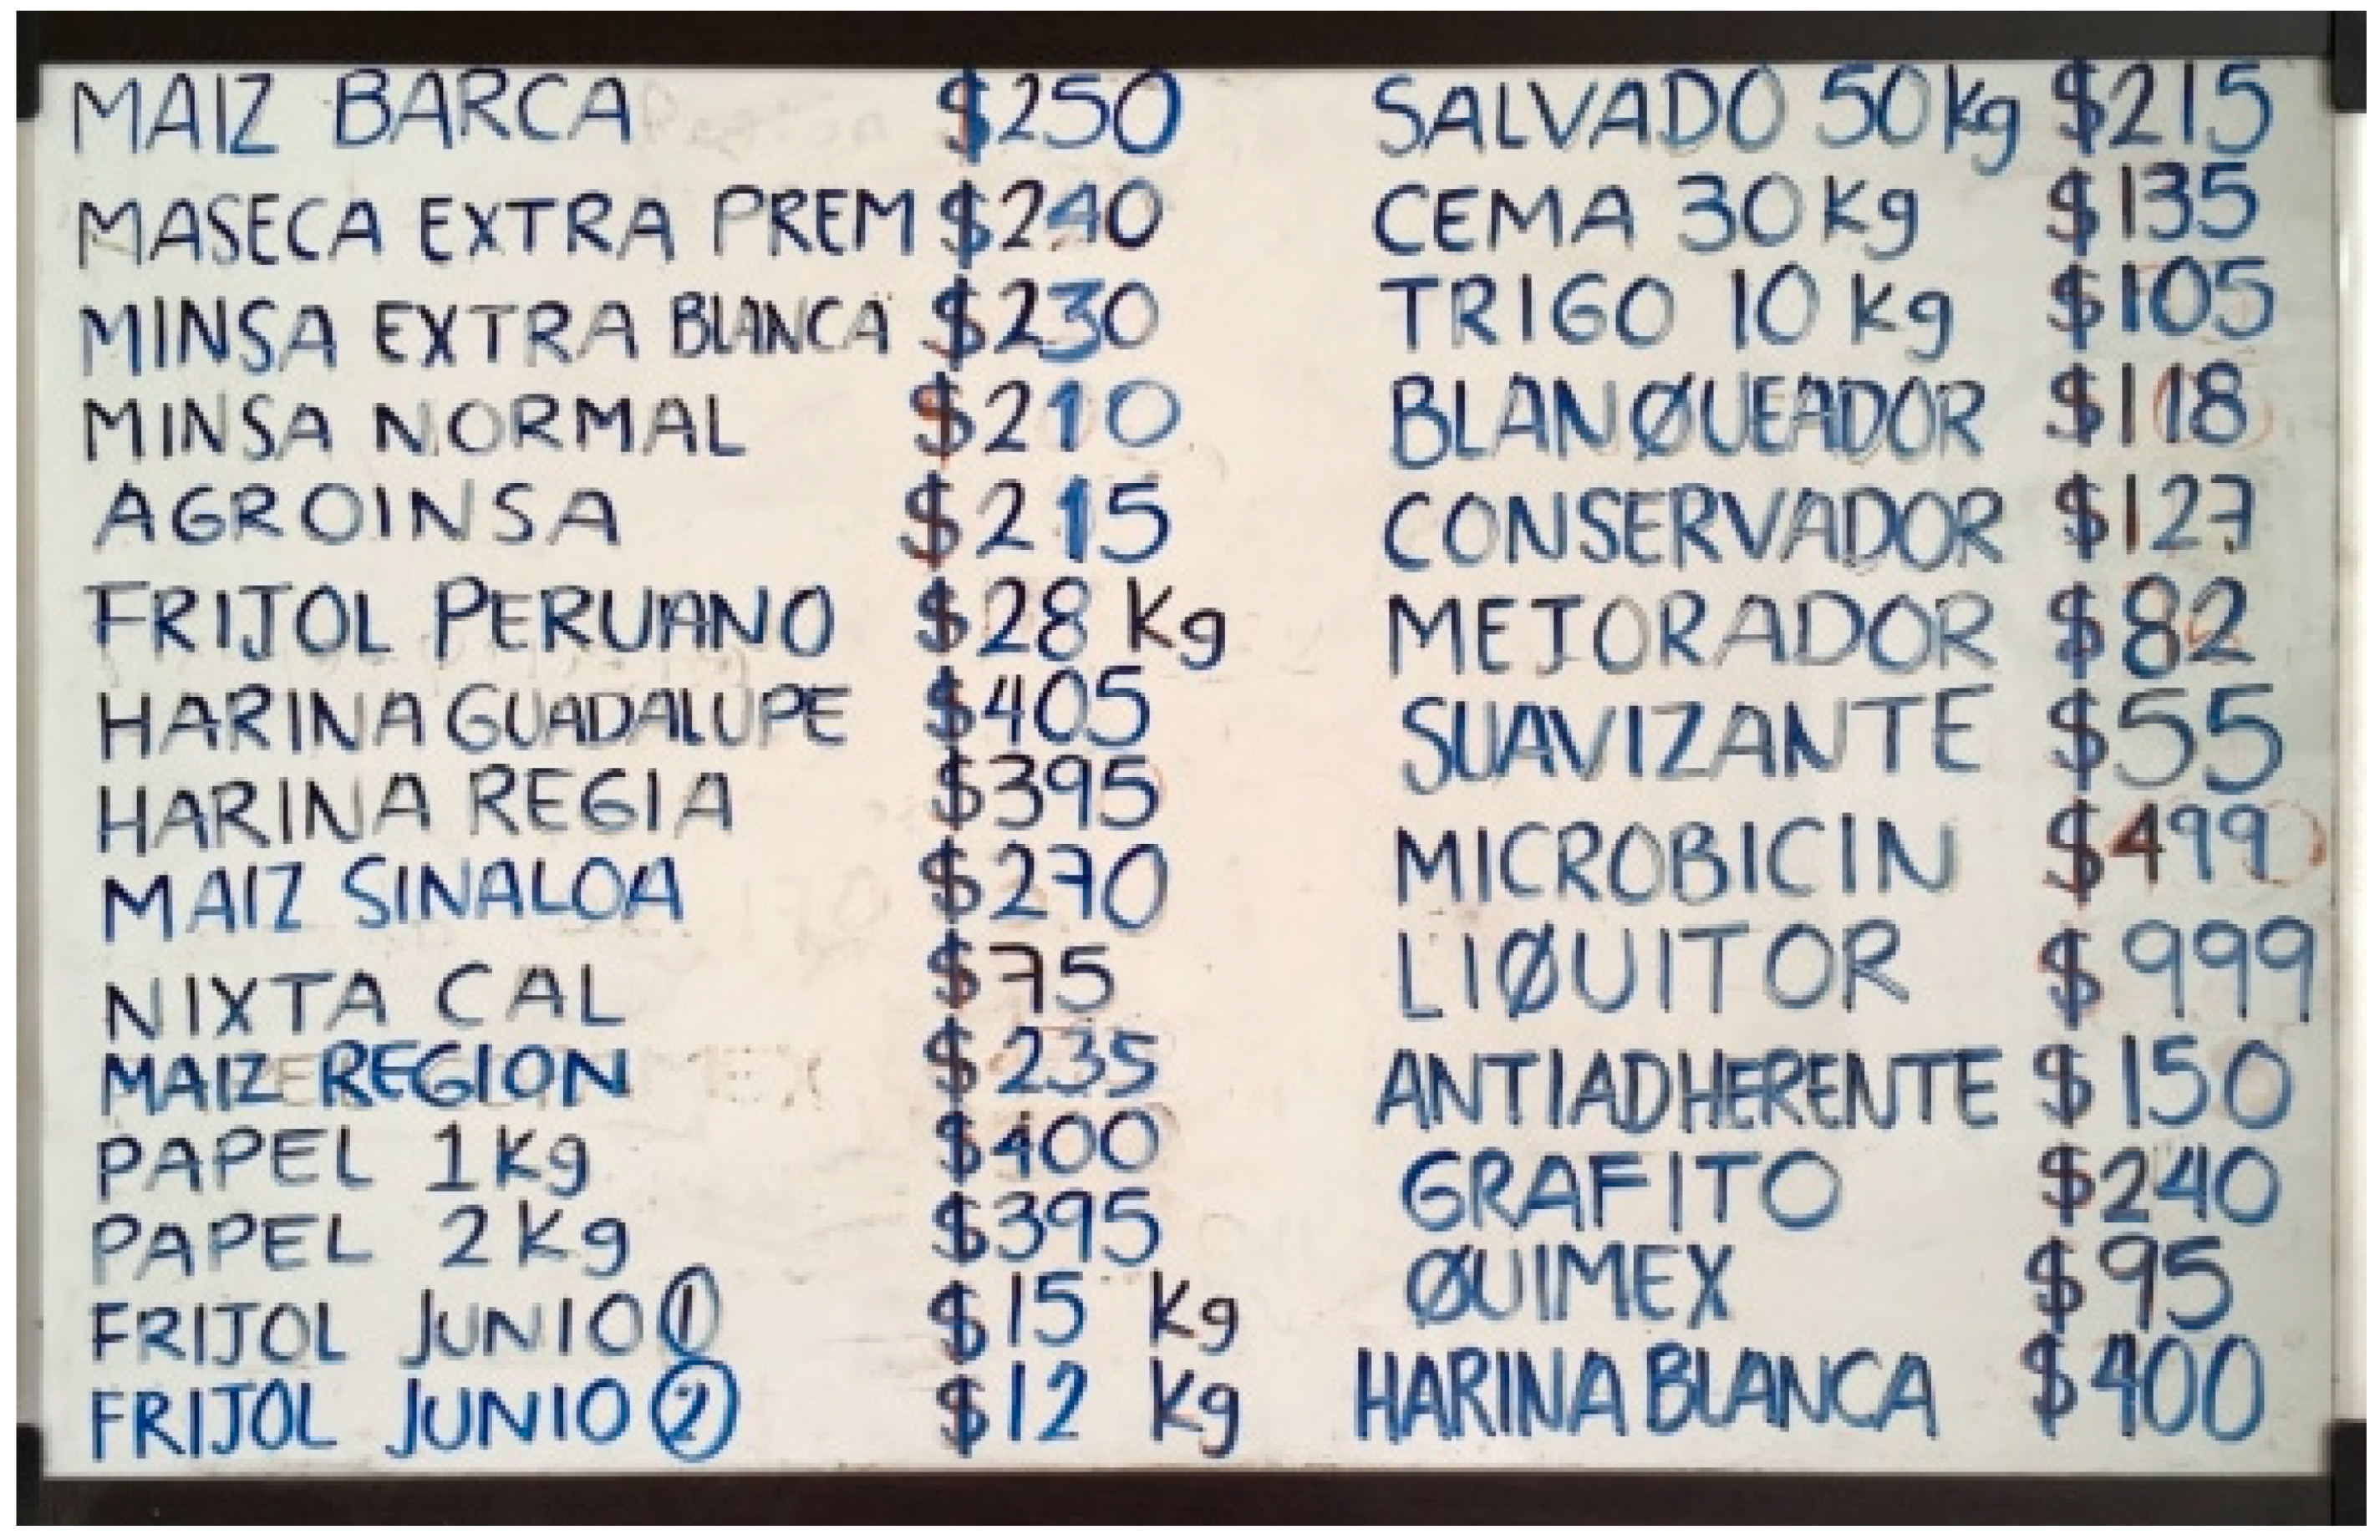 MAIZ BARCA $250
MASECA EXTRA PREM $240
MINSA EXTRA BLANCA $230
MINSA NORMAL $210
AGROINSA $215
FRIJOL PERUANO $28 Kg
HARINA GUADALUPE $405
HARINA REGIA $395
MAIZ SINALOA $270
NIXTA CAL $75
MAIZ REGION $235
PAPEL 1Kg $400
PAPEL 2Kg $395
FRIJOL JUNIO ① $15 Kg
FRIJOL JUNIO ② $12 Kg
SALVADO 50kg $215
CEMA 30Kg $135
TRIGO 10 Kg $105
BLANQUEADOR $118
CONSERVADOR $127
MEJORADOR $82
SUAVIZANTE $55
MICROBICIN $499
LIQUITOR $999
ANTIADHERENTE $150
GRAFITO $240
QUIMEX $95
HARINA BLANCA $400